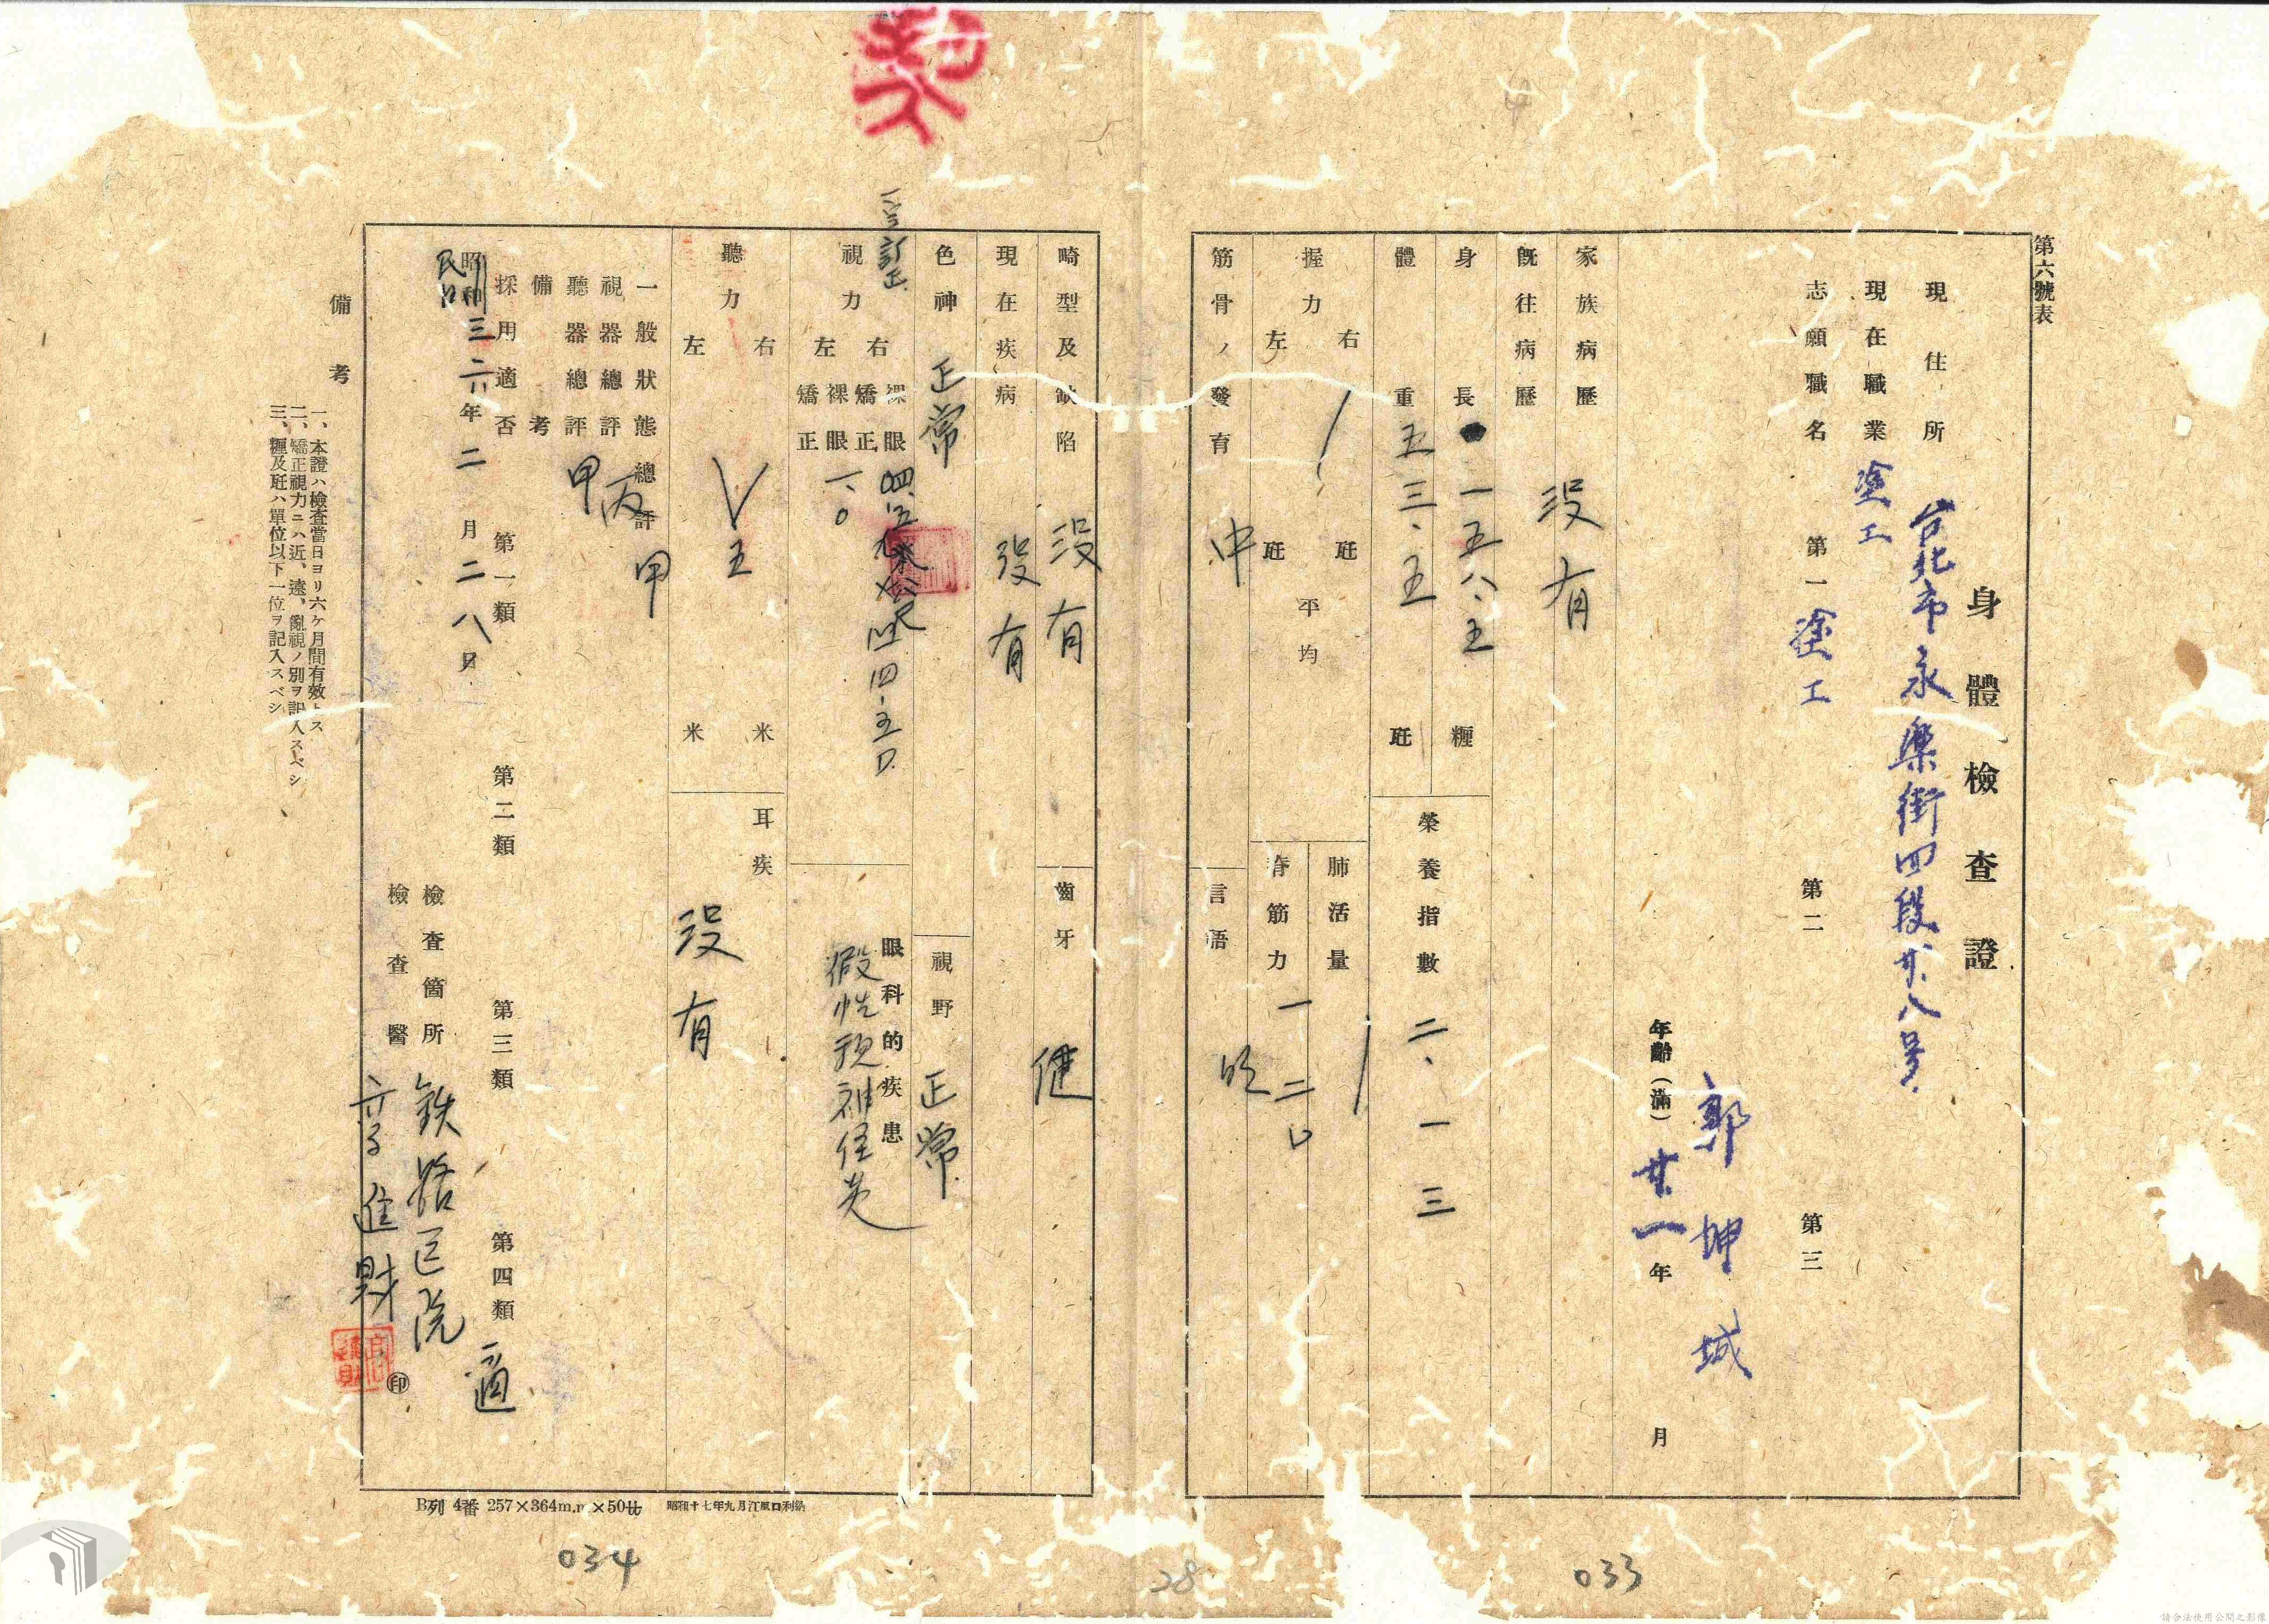 第六號表
身體檢查證
現住所 台北市永樂街四段廿八号
現在職業 塗工
志願職名 第一 塗工 第二 第三
郭坤城
年齡(滿)廿一年 月
家族病歷
既往病歷 沒有
身長 一五八.五 糎
體重 五三.五 瓩
榮養指數 二.一三
握力 右 瓩 左 瓩 平均
肺活量
背筋力 一二〇
筋骨ノ發育 中
言語 明
畸型及缺陷 沒有
齒牙 健
現在疾病 沒有
色神 正常
視野 正常
訂正
視力 右 裸眼 矯正 左 裸眼 矯正
一.〇
四.五D
眼科的疾患 假性視神経炎
聽力 右 米 左 米
五
耳疾 沒有
一般狀態總評 甲
視器總評 丙
聽器總評 甲
備考
採用適否 第一類 第二類 第三類 第四類 適
昭和 民國 三六年二月二八日
檢查箇所 鉄路医院
檢查醫 章進財 印
備考
一、本證ハ檢查當日ヨリ六ケ月間有效トス
二、矯正視力ニハ近、遠、亂視ノ別ヲ記入スベシ
三、糎及瓩ハ單位以下一位ヲ記入スベシ
B列 4番 257×364m.m×50廿
昭和十七年九月江原口利納
034
28
033
請合法使用公開之影像